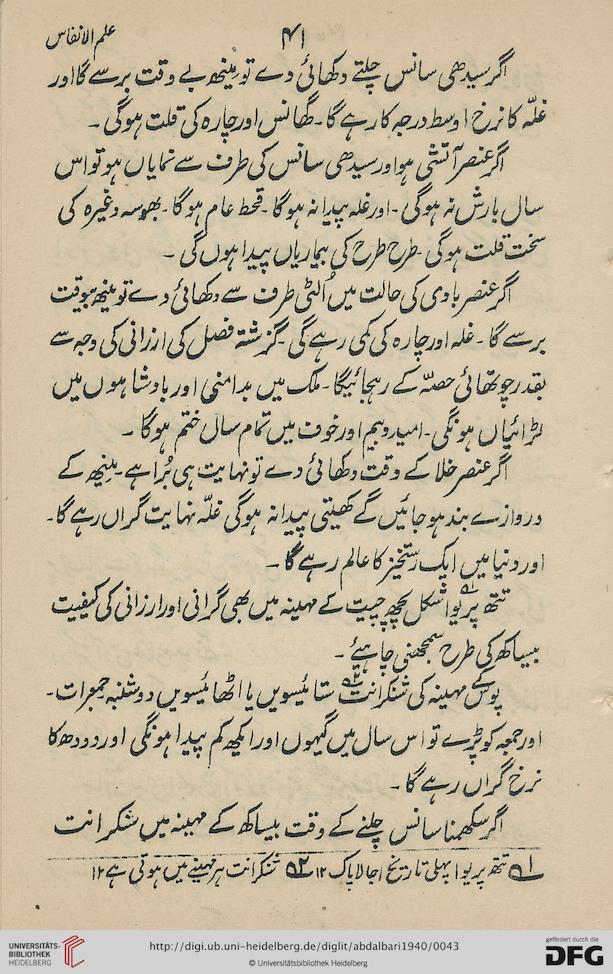 ۴۱
علم الانفاس
اگر سیدھی سانس چلتے دکھائی دے تو مینھ بے وقت برسے گا اور
غلّہ کا نرخ اوسط درجہ کا رہے گا۔ گھانس اور چارہ کی قلت ہوگی۔
اگر عنصر آتشی ہو اور سیدھی سانس کی طرف سے نمایاں ہو تو اس
سال بارش نہ ہوگی۔ اور غلہ پیدا نہ ہوگا۔ قحط عام ہوگا۔ بھوسہ وغیرہ کی
سخت قلت ہوگی۔ طرح طرح کی بیماریاں پیدا ہوں گی۔
اگر عنصر بادی کی حالت میں اُلٹی طرف سے دکھائی دے تو مینھ بیوقت
برسے گا۔ غلہ اور چارہ کی کمی رہے گی۔ گزشتہ فصل کی ارزانی کی وجہ سے
بقدر چوتھائی حصّہ کے رہجائیگا۔ ملک میں بدامنی اور بادشاہوں میں
لڑائیاں ہونگی۔ امید و بیم اور خوف میں تمام سال ختم ہوگا۔
اگر عنصر خلا کے وقت دکھائی دے تو نہایت ہی بُرا ہے۔ مینھ کے
دروازے بند ہو جائیں گے کھیتی پیدا نہ ہوگی غلّہ نہایت گراں رہے گا۔
اور دنیا میں ایک رستخیز کا عالم رہے گا۔
تتھ پریوا ۱؎ شکل پچھ چیت کے مہینہ میں بھی گرانی اور ارزانی کی کیفیت
بیساکھ کی طرح سمجھنی چاہئے۔
پوس کے مہینہ کی شنکرانت ۲؎ ستائیسویں یا اٹھائیسویں دوشنبہ جمعرات۔
اور جمعہ کو پڑے تو اس سال میں گیہوں اور ایکھ کم پیدا ہونگی اور دودھ کا
نرخ گراں رہے گا۔
اگر سکھمنا سانس چلنے کے وقت بیساکھ کے مہینہ میں شنکرانت
۱؎ تتھ پریوا پہلی تاریخ اجالا پاک ۱۲ ۲؎ شنکرانت ہر مہینے میں ہوتی ہے ۱۲
UNIVERSITÄTS-
BIBLIOTHEK
HEIDELBERG
http://digi.ub.uni-heidelberg.de/diglit/abdalbari1940/0043
© Universitätsbibliothek Heidelberg
gefördert durch die
DFG